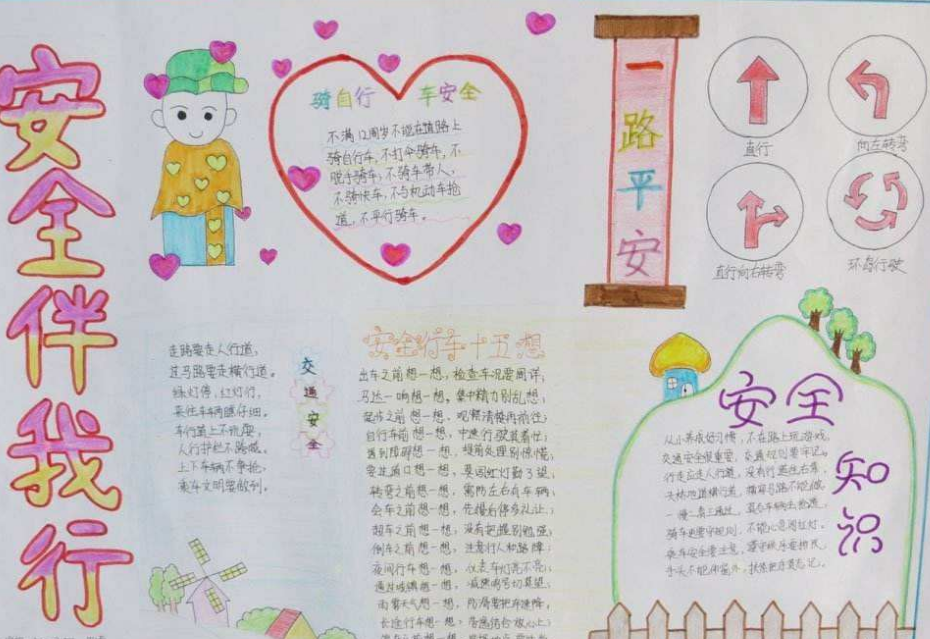 安全伴我行
骑自行车安全
不满12周岁不能在道路上
骑自行车,不打伞骑车,不
脱手骑车,不骑车带人,
不骑快车,不与机动车抢
道,不平行骑车。
一路平安
直行
向左转弯
直行向右转弯
环岛行驶
走路要走人行道,
过马路要走横行道。
绿灯停,红灯行,
来往车辆瞧仔细。
车行道上不玩耍,
人行护栏不跨越。
上下车辆不争抢,
乘车文明要做到。
交通安全
安全行车十五想
出车之前想一想,检查车况要周详,
马达一响想一想,集中精力别乱想;
起步之前想一想,观察清楚再前往;
自行车前想一想,中速行驶莫着忙;
遇到障碍想一想,提前处理别惊慌;
要过道口想一想,莫闯红灯勤了望,
转弯之前想一想,需防左右有车辆,
会车之前想一想,先慢后停多礼让;
超车之前想一想,没有把握别勉强;
倒车之前想一想,注意行人和路障;
夜间行车想一想,仪表车灯亮不亮;
通过城镇想一想,减速鸣号切莫望;
雨雾天气想一想,防滑要把车速降,
长途行车想一想,
安全知识
从小养成好习惯,不在路上玩游戏,
交通安全很重要,交通规则要牢记。
行走应走人行道,没有行道往右靠,
天桥地道横行道,横穿马路不能做,
一慢二看三通过,莫与车辆去抢道,
骑车更要守规则,不能心急闯红灯,
乘车安全要注意,遵守秩序要排民,
手头不能伸窗外,扶紧把手莫忘记。